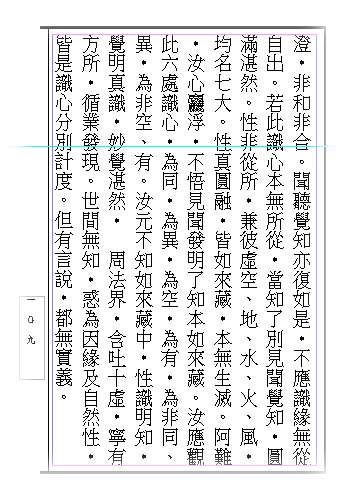 澄·非和非合。聞聽覺知亦復如是·不應識緣無從
自出。若此識心本無所從·當知了別見聞覺知·圓
滿湛然。性非從所·兼彼虛空、地、水、火、風·
均名七大。性真圓融·皆如來藏·本無生滅。阿難
·汝心麤浮·不悟見聞發明了知本如來藏。汝應觀
此六處識心·為同·為異·為空·為有·為非同、
異·為非空、有。汝元不知如來藏中·性識明知·
覺明真識·妙覺湛然· 周法界·含吐十虛·寧有
方所·循業發現。世間無知·惑為因緣及自然性·
皆是識心分別計度。但有言說·都無實義。
一０九